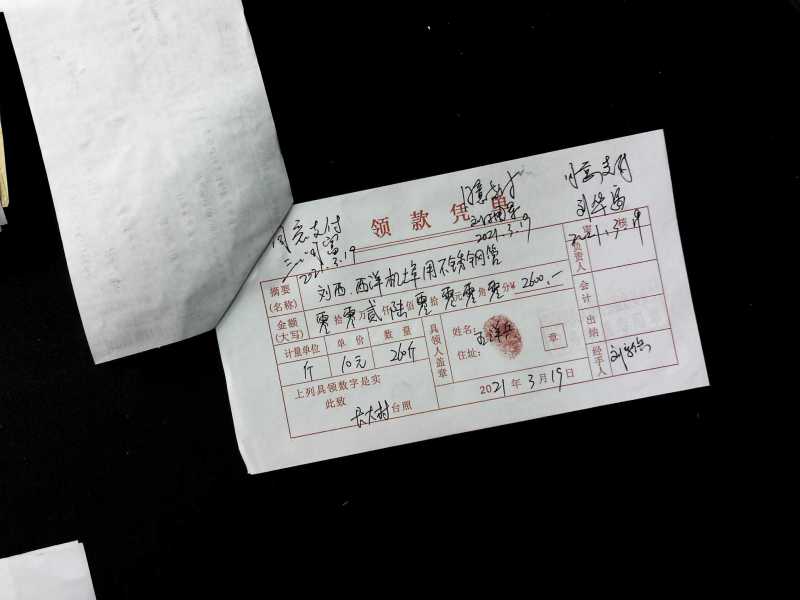 领款凭单
同意支付
2021.3.19
同意支付
2021.3.19
同意支付
2021.3.19
摘要
(名称)
刘西、西洋机埠用不锈钢管
金额
(大写)
零拾零万贰仟陆佰零拾零元零角零分¥2600.—
计量单位 单价 数量
斤 10元 260斤
上列具领数字是实
此致
长大村台照
具领人盖章
姓名:王洋兵
住址:
章
2021年3月19日
审核
负责人
会计
出纳
经手人